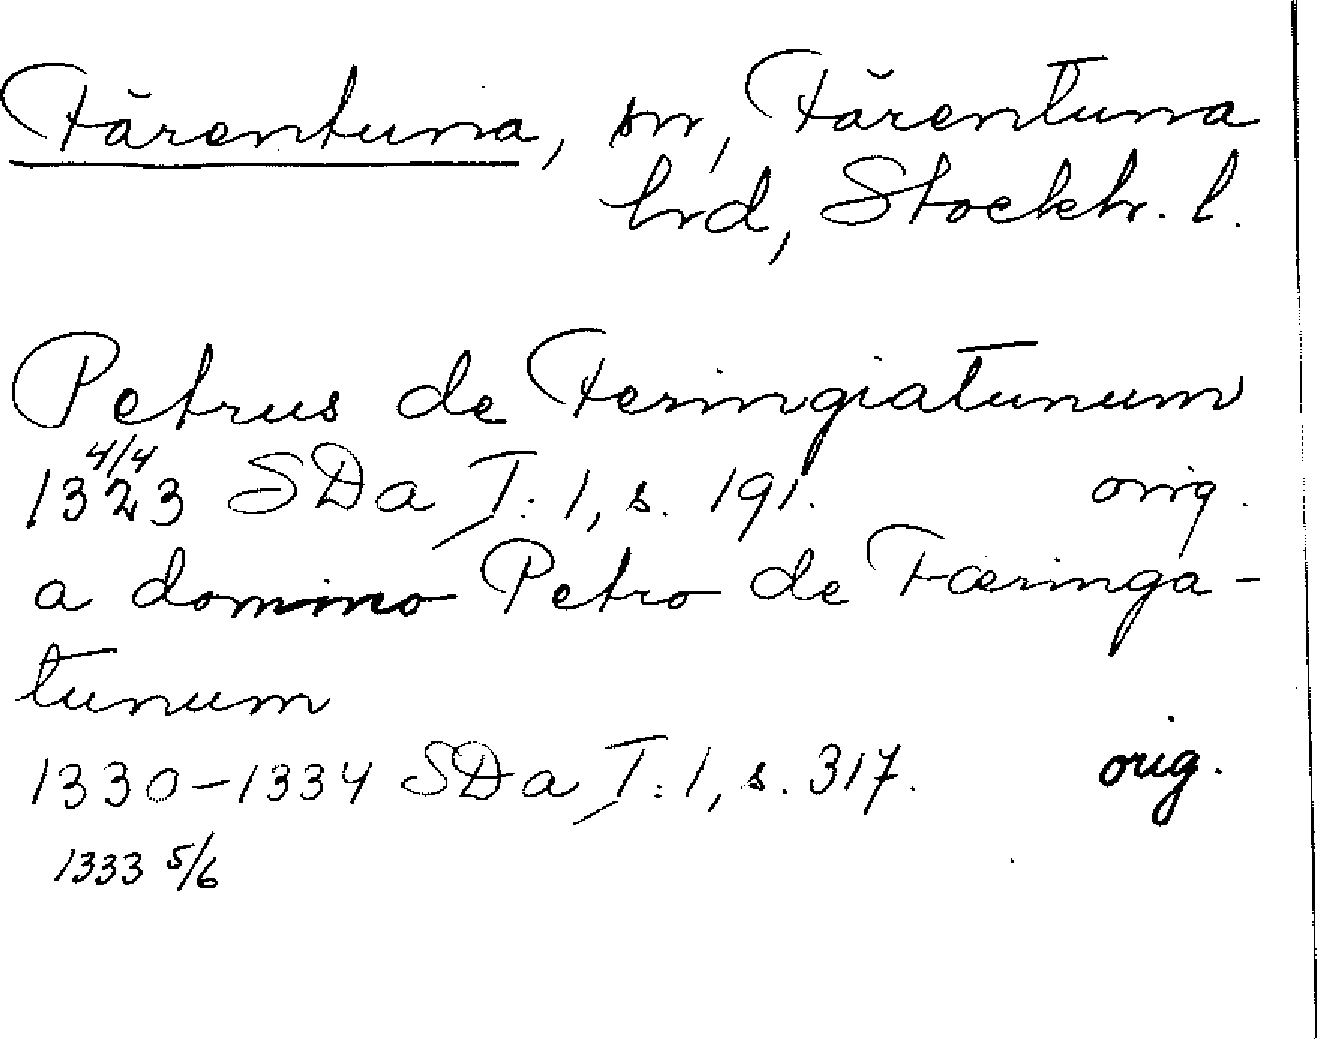 Färentuna, sn, Färentuna
hrd, Stockh. l.
Petrus de Feringiatunum
4/4
1323 SDa I: 1, s. 191. orig.
a domino Petro de Færinga-
tunum
1330-1334 SDa I: 1, s. 317. orig.
1333 5/6